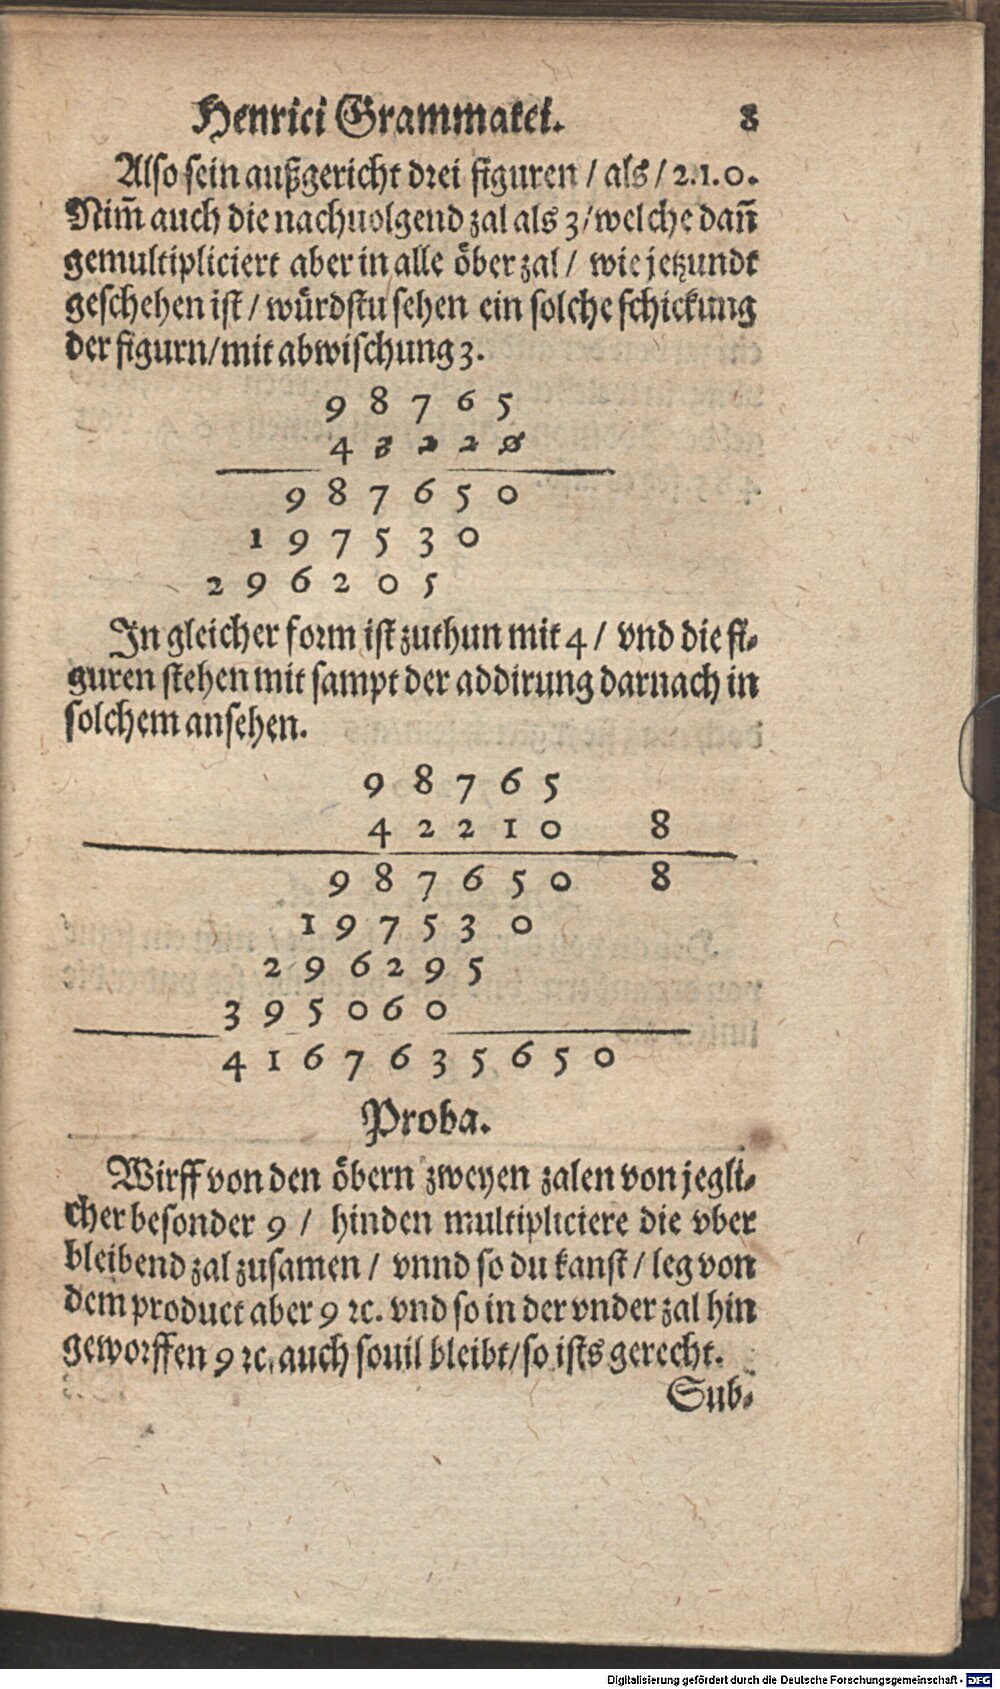 Henrici Grammatei. 8
Also sein außgericht drei figuren / als / 2.1.0.
Nim̃ auch die nachuolgend zal als 3/welche dañ
gemultipliciert aber in alle öber zal / wie jetzundt
geschehen ist / würdstu sehen ein solche schickung
der figurn/mit abwischung 3.
9 8 7 6 5
4 3 2 2 0
9 8 7 6 5 0
1 9 7 5 3 0
2 9 6 2 0 5
In gleicher form ist zuthun mit 4 / vnd die fi-
guren stehen mit sampt der addirung darnach in
solchem ansehen.
9 8 7 6 5
4 2 2 1 0 8
9 8 7 6 5 0 8
1 9 7 5 3 0
2 9 6 2 9 5
3 9 5 0 6 0
4 1 6 7 6 3 5 6 5 0
Proba.
Wirff von den öbern zweyen zalen von jegli-
cher besonder 9 / hinden multipliciere die vber
bleibend zal zusamen / vnnd so du kanst / leg von
dem product aber 9 ꝛc. vnd so in der vnder zal hin
geworffen 9 ꝛc. auch souil bleibt/so ists gerecht.
Sub-
Digitalisierung gefördert durch die Deutsche Forschungsgemeinschaft - DFG